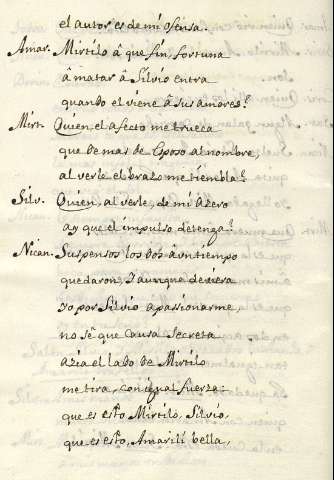 el autor es de mi ofensa.
Amar. Mirtilo â que fin fortuna
â matar â Silvio entra
quando el viene â sus amores?
Mirt. Quien el afecto me trueca
que de mas de Esposo al nombre,
al verle el brazo me tiembla?
Silv. Quien, al verle, de mi azero
ay que el impulso detenga?
Nican. Suspensos los dos â un tiempo
quedaron, y aunque deviera
yo por Silvio apasionarme
no sê que causa secreta
azia el lado de Mirtilo
me tira, con igual fuerza:
que es esto Mirtilo, Silvio,
que es esto, Amarili bella,